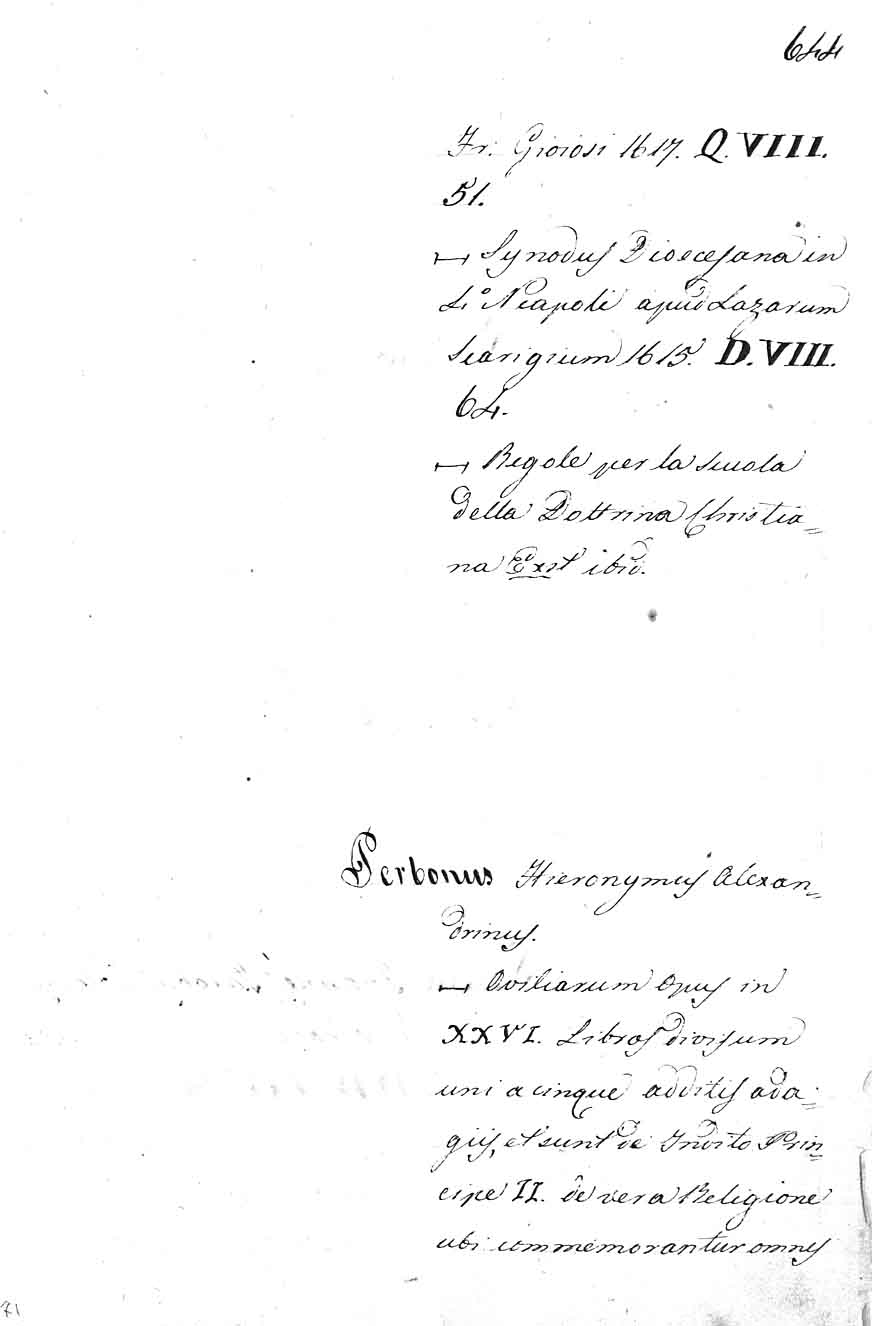 644
Fr. Gioiosi 1617. Q. VIII.
51.
⟼ Synodus Diocesana in
4.° Neapoli apud Lazarum
Scarigium 1615. D. VIII.
64.
⟼ Regole per la scuola
della Dottrina Christia=
na Exst ibid.
Perbonus Hieronymus Alexan=
drinus.
⟼ Oviliarum Opus in
XXVI. Libros divisum
uni a cinque additis ada=
giis, et sunt de Invito Prin=
cipe II. de vera Religione
ubi commemorantur omnes
71